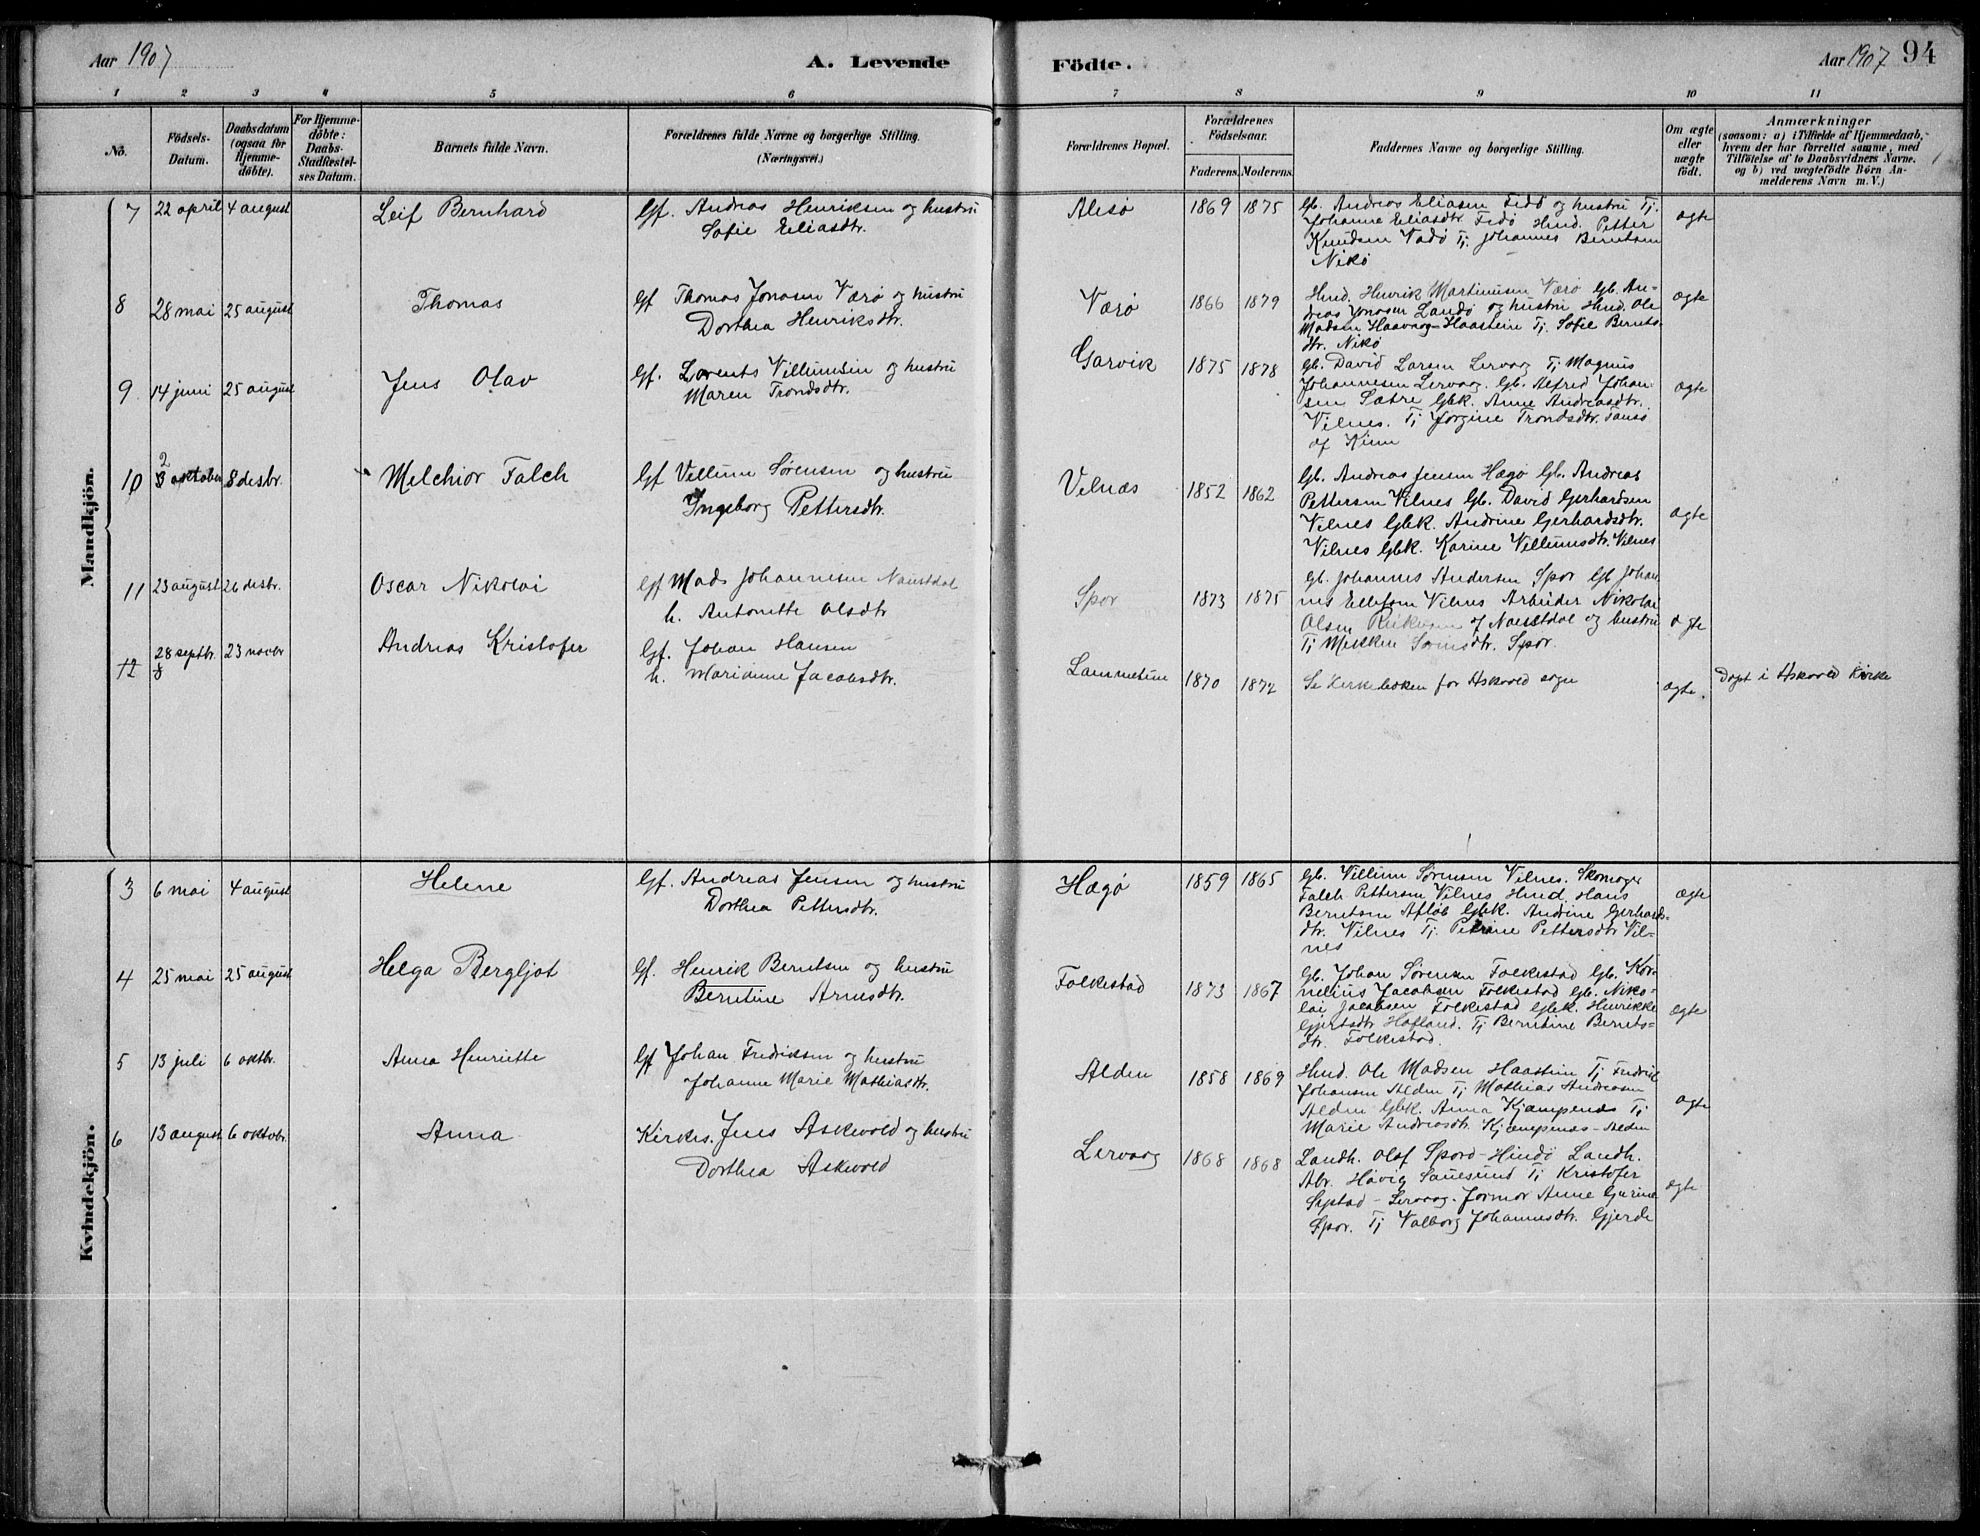 Aar 1907
A. Levende
Födte.
Aar 1907 94
1 2 3 4 5 6 7 8 9 10 11
No.
Födsels-Datum.
Daabsdatum (ogsaa for Hjemme-döbte).
For Hjemme-döbte: Daabs-Stadfæstel-ses Datum.
Barnets fulde Navn.
Forældrenes fulde Navne og borgerlige Stilling.
(Næringsvei.)
Forældrenes Bopæl.
Forældrenes Födselsaar.
Faderens. Moderens.
Faddernes Navne og borgerlige Stilling.
Om ægte eller uægte födt.
Anmærkninger
(saasom: a) i Tilfælde af Hjemmedaab, hvem der har forrettet samme, med Tilföielse af to Daabsvidners Navne, og b) ved uægtefödte Börn An-melderens Navn m. V.)
Mandkjön.
7 22 april 4 august Leif Bernhard Gf. Andreas Henriksen og hustru
Sofie Eliasdtr.
Alesö 1869 1875
Gb. Andreas Eliasen Fedö og hustru Tj.
Johanne Eliasdtr. Fedö Hmd. Petter
Knudsen Vadö Tj. Johannes Berntsen
Nikö
ægte
8 28 mai 25 august Thomas Gf Thomas Jonasen Værö og hustru
Dorthea Henriksdtr.
Værö 1866 1879
Hmd. Henrik Martinusen Værö Gb. An-
dreas Jonasen Landö og hustru Hmd. Ole
Madsen Haavaag-Haastein Tj. Sofie Bernts-
dtr. Nikö
ægte
9 14 juni 25 august Jens Olav Gf. Lorents Villumsen og hustru
Maren Trondsdtr.
Garvik 1875 1878
Gb. David Larsen Lervaag Tj Magnus
Johannesen Lervaag. Gb. Alfred Johan-
sen Sætre Gbk. Anne Andreasdtr.
Vilnes. Tj Jorgine Trondsdtr. Tansö
af Kinn
ægte
10 2 3 oktober 8 desbr. Melchior Falch Gf Villum Sörensen og hustru
Ingeborg Pettersdtr.
Vilnæs 1852 1862
Gb. Andreas Jensen Hægö Gb. Andreas
Pettersen Vilnes Gb. David Gerhardsen
Vilnes Gbk. Andrine Gerhardsdtr.
Vilnes Gbk. Karine Villumsdtr. Vilnes
ægte
11 23 august 26 desbr. Oscar Nikolai Gf Mads Johannesen Naustdal
h. Antonette Olsdtr
Spor 1873 1875
Gb. Johannes Andersen Spor Gb Johan
nes Ellefsen Vilnes Arbeider Nikolai
Olsen af Naustdal og hustru
Tj Mekken Sörensdtr. Spor.
ægte
12 28 septbr. 8 23 novbr Andreas Kristofer Gf. Johan Hansen
h. Marianne Jacobsdtr.
Lammetun 1870 1872
Se Kirkeboken for Askvold sogn
ægte.
Döpt i Askvold Kirke
Kvindekjön.
3 6 mai 4 august Helene Gf. Andreas Jensen og hustru
Dorthea Pettersdtr.
Hægö 1859 1865
Gb. Villum Sörensen Vilnes. Skomager
Falch Pettersen Vilnes Hmd. Hans
Berntsen Aflöb Gbk. Andrine Gerhards-
dtr. Vilnes Tj. Petrine Pettersdtr Vil-
nes
ægte
4 25 mai 25 august Helga Bergljot Gf. Henrik Berntsen og hustru
Berntine Arnesdtr.
Folkestad 1873 1867
Gb. Johan Sörensen Folkestad Gb. Kor-
nelius Jacobsen Folkestad Gb. Niko-
lai Jacobsen Folkestad Gbk. Henrikke
Gjertsdtr Hofland. Tj Berntine Bernts-
dtr. Folkestad.
ægte
5 13 juli 6 oktbr. Anna Henriette Gf Johan Fredriksen og hustru
Johanne Marie Mathiasdtr.
Alden 1858 1869
Hmd. Ole Madsen Haastein Tj Fredrik
Johansen Alden Tj Mathias Andreasen
Alden Gbk. Anna Kjæmpenæs Tj
Marie Andreasdtr. Kjæmpenæs-Alden
ægte
6 13 august 6 oktobr. Anna Kirkes. Jens Askevold og hustru
Dorthea Askevold
Lervaag 1868 1868
Landh. Olaf Spord-Hindö Landh.
Abr. Høvig Sauesund Tj Kristofer
Systad-Lervaag. Jormor Anne Gurine
Spor. Tj Valborg Johannesdtr. Gjerde
ægte